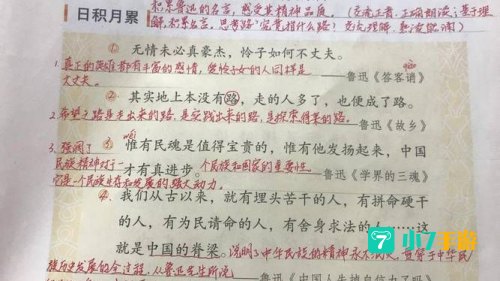 日积月累
积累鲁迅的名言,感受其精神品质。(交流正音,正确朗读;基于理
解,积累名言,思考"路"究竟指什么路?交流理解,熟读
①
无情未必真豪杰,怜子如何不丈夫。
1.真正的英雄都有丰富的感情,爱怜子女的人同样是
大丈夫。
——鲁迅《答客诮》
②
其实地上本没有路,走的人多了,也便成了路。
2.希望之路是走出来的路,是实践出来的路,是探索得来的路。
——鲁迅《故乡》
3.强调了
③
惟有民魂是值得宝贵的,惟有他发扬起来,中国
民族精神对于一
才有真进步。
个民族和国家的重要性。
——鲁迅《学界的三魂》
它是一个民族生存和发展的强大动力。
④
我们从古以来,就有埋头苦干的人,有拼命硬干
的人,有为民请命的人,有舍身求法的人……这
就是中国的脊梁。
说明了中华民族的精神永不
历史发展的全过程,从鲁迅先生所
——鲁迅《中国人失掉自信力了吗》
小7手游